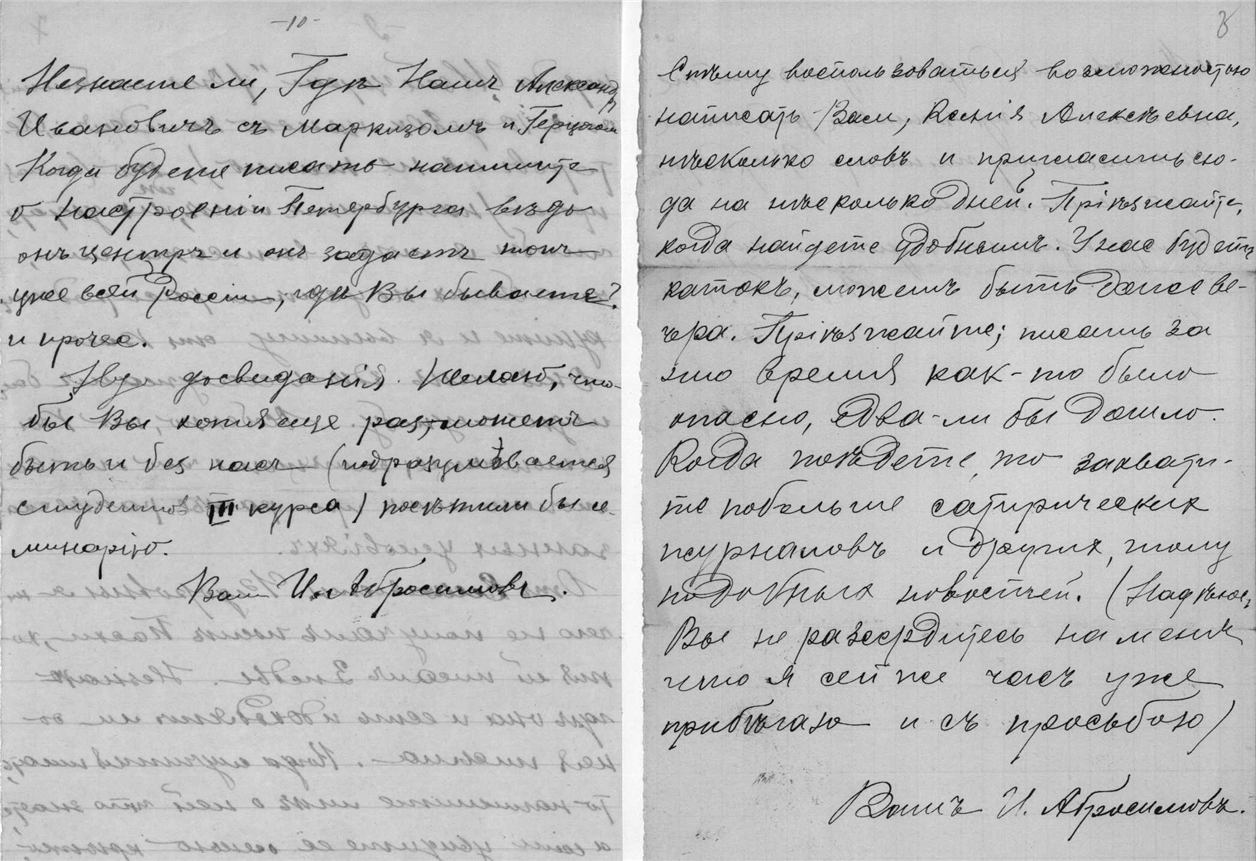 -10-
Незнаете ли, Гдѣ Нашъ Александръ
Ивановичъ съ Маркизомъ и Герцогом
Когда будете писать напишите
о настроеніи Петербурга вѣдь
онъ центръ и он задастъ тонъ
уже всей Россіи, гдѣ Вы бываете?
и прочее.
Ну досвиданія. Желаю, что-
бы Вы хотя еще раз, можетъ
быть и без насъ (подразумѣвается
студентов III курса) посѣтили бы се-
минарію.
Ваш И. Абросимовъ.
8
Спѣшу воспользоваться возможностью
написать Вам, Ксенія Алексѣевна,
нѣсколько словъ и пригласить сю-
да на нѣсколько дней. Пріѣзжайте,
когда найдете удобнымъ. У нас будетъ
катокъ, можетъ быть даже ве-
чера. Пріѣзжайте; писать за
это время как-то было
опасно, едва-ли бы дошло.
Когда поѣдете, то захвати-
те побольше сатирических
журналовъ и других, тому
подобных новостей. (Надѣюсь,
Вы не разсердитесь на меня
что я сей же часъ уже
прибѣгаю и съ просьбою)
Вашъ И. Абросимовъ.